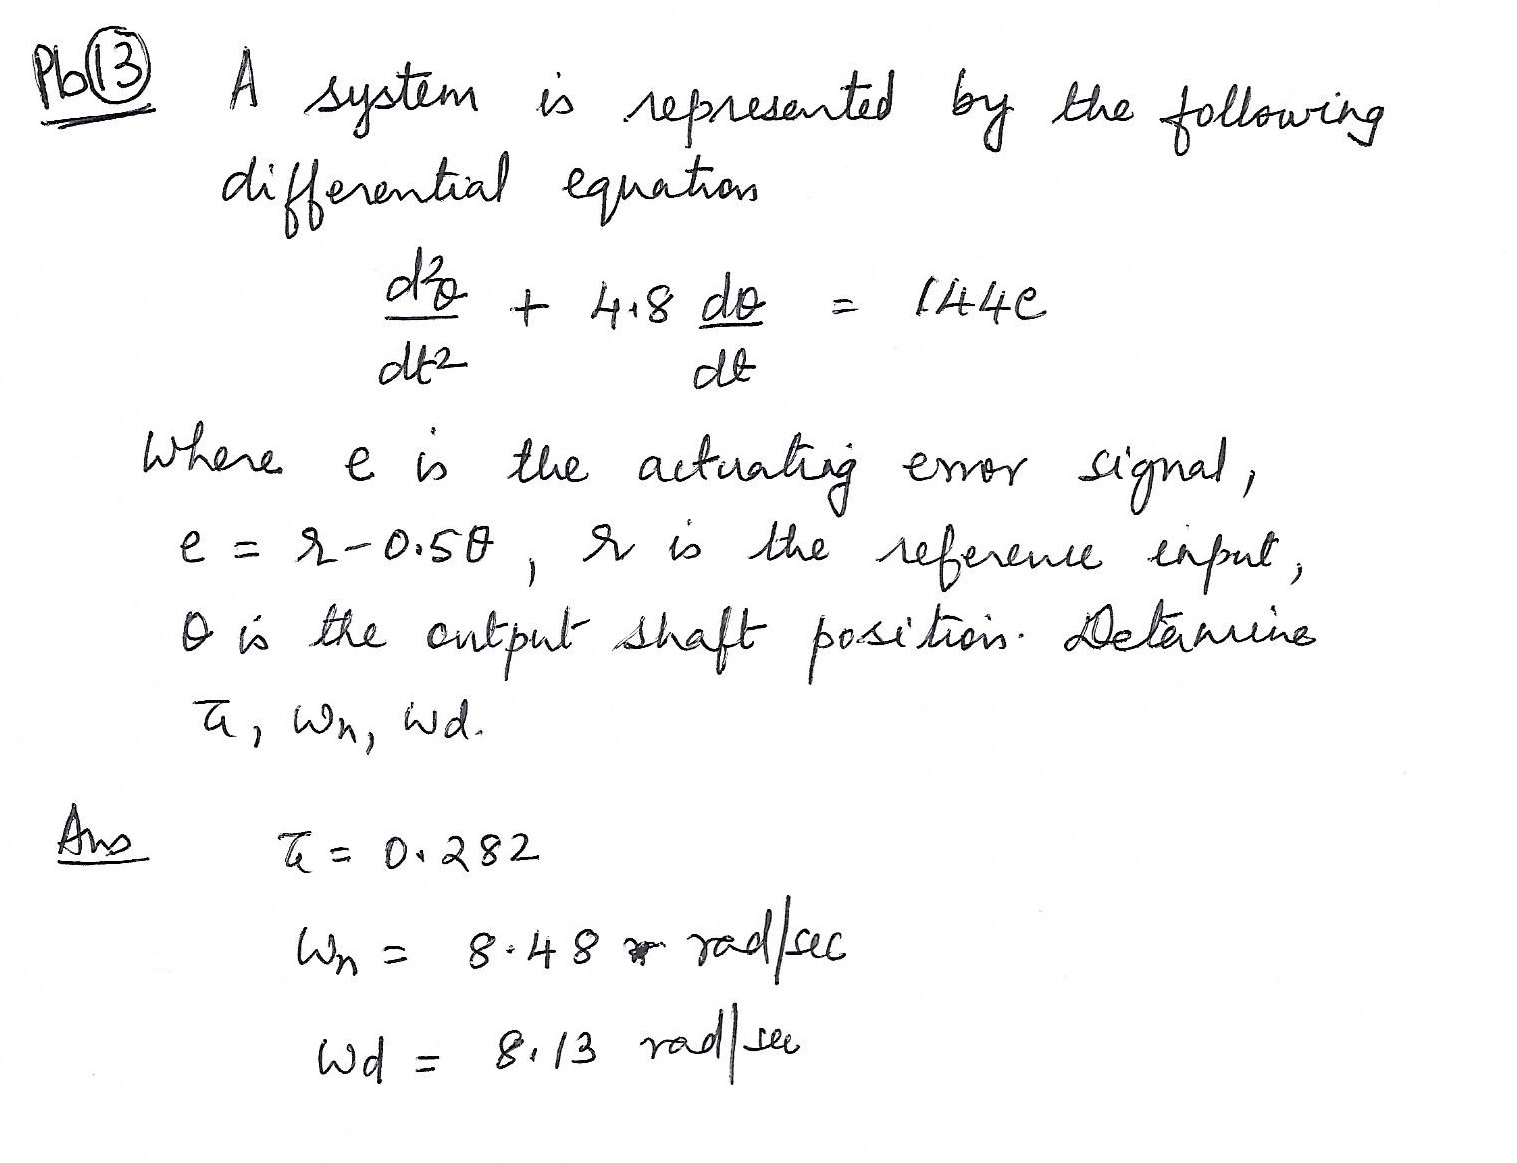 Pb 13 A system is represented by the following
differential equation
d²θ/dt² + 4.8 dθ/dt = 144e
Where e is the actuating error signal,
e = r - 0.5θ, r is the reference input,
θ is the output shaft position. Determine
ζ, ωn, ωd.
Ans ζ = 0.282
ωn = 8.48 rad/sec
ωd = 8.13 rad/sec